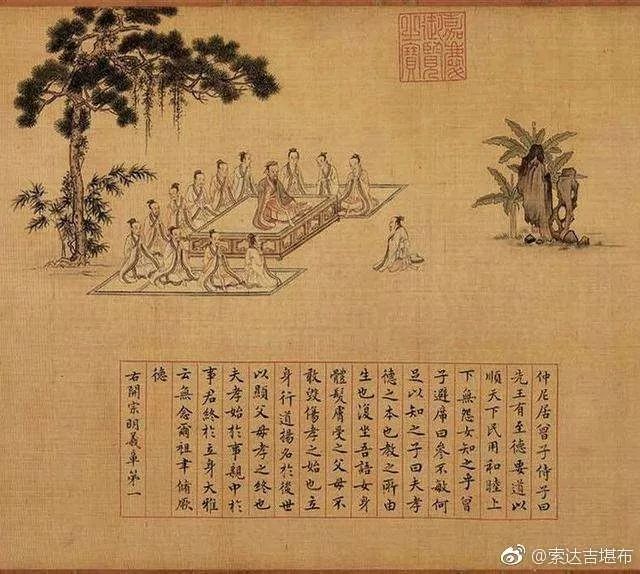 嘉慶
御覽
之寶
仲尼居曾子侍子曰
先王有至德要道以
順天下民用和睦上
下無怨女知之乎曾
子避席曰參不敏何
足以知之子曰夫孝
德之本也教之所由
生也復坐吾語女身
體髮膚受之父母不
敢毀傷孝之始也立
身行道揚名於後世
以顯父母孝之終也
夫孝始於事親中於
事君終於立身大雅
云無念爾祖聿脩厥
德
右開宗明義章第一
@索达吉堪布